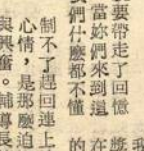 我
要帶走了回憶
當妳們來到這
們什麼都不懂
制不了趕回連上
心情，是那麼迫
與興奮。輔導長